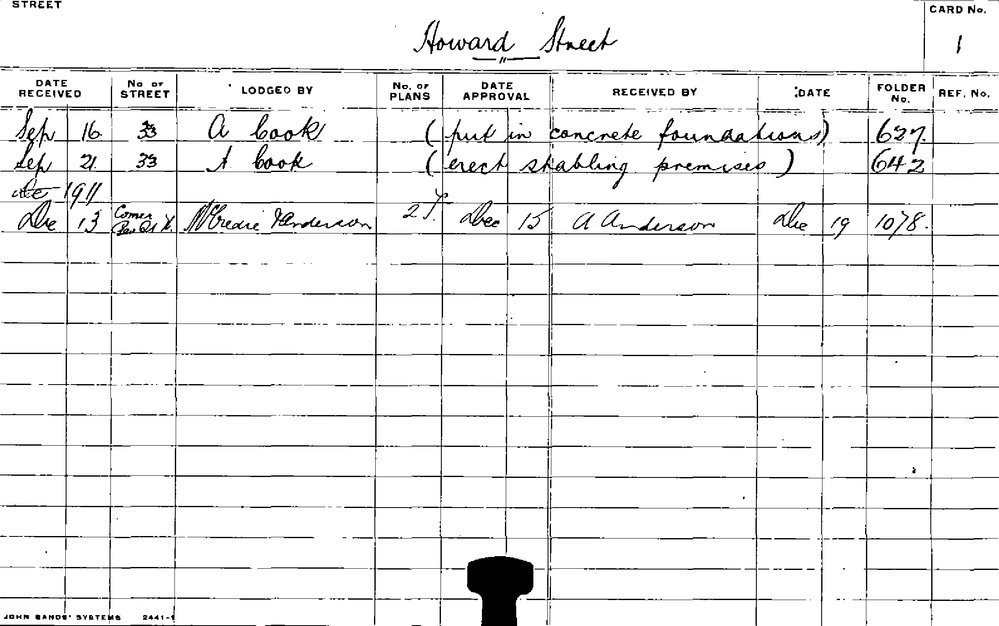 STREET
CARD No.
Howard Street
1
DATE RECEIVED No OF STREET LODGED BY No. OF PLANS DATE APPROVAL RECEIVED BY DATE FOLDER No. REF. No.
Sep 16 33 A Cook (put in concrete foundations) 627.
Sep 21 33 A Cook (erect stabling premises) 642
1911
Dec 13 Corner McCredie & Anderson 2 T. Dec 15 A Anderson Dec 19 1078.
JOHN SANDS' SYSTEMS 2441-1